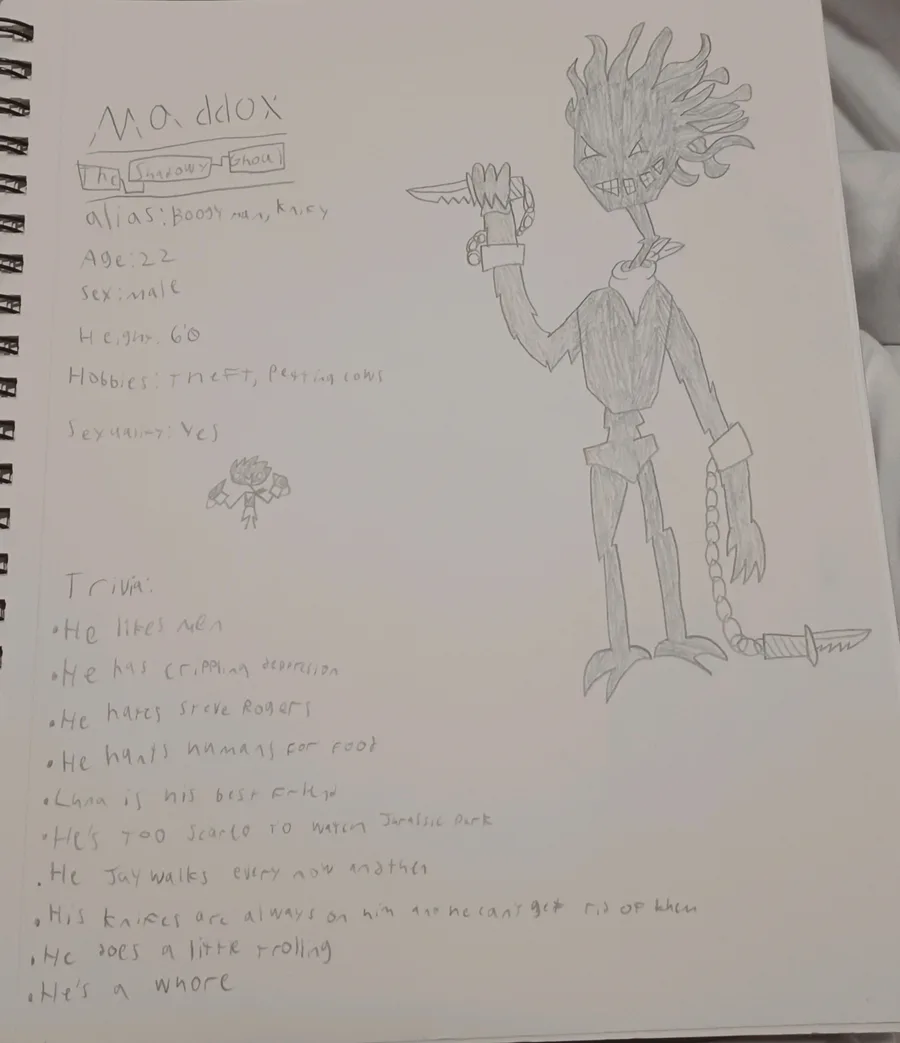 Maddox
The Shadowy Ghoul
alias: Boogy man, knify
Age: 22
Sex: male
Height: 6'0
Hobbies: Theft, Petting cows
Sexuality: Yes
Trivia:
• He likes men
• He has crippling depression
• He hates Steve Rogers
• He hunts humans for food
• Luna is his best friend
• He's too scared to watch Jurassic Park
• He Jaywalks every now another
• His knifes are always on him and he can't get rid of them
• He does a little trolling
• He's a whore